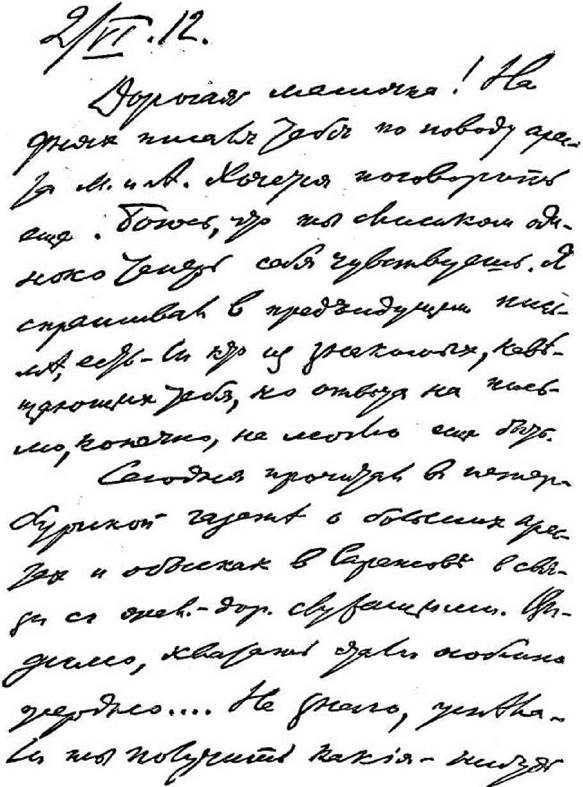 2/VI.12.
Дорогая мамочка! На
днях писалъ тебѣ по поводу арес-
та М. и А. Хочется поговорить
еще. Боюсь, что ты слишком оди-
ноко теперь себя чувствуешь. Я
спрашивал в предъидущем пись-
мѣ, есть-ли кто из знакомых, навѣ-
щающих тебя, но отвѣта на пись-
мо, конечно, не могло еще быть.
Сегодня прочитал в петер-
бургской газетѣ о больших арес-
тах и обысках в Саратовѣ в свя-
зи с жел.-дор. служащими. Ви-
димо, хватать стали особенно
усердно.... Не знаю, успѣла-
ли ты получить какія-нибудь